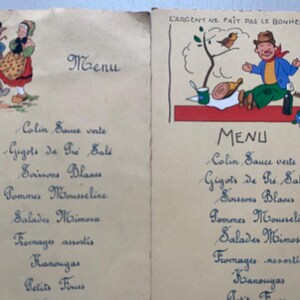 Menu
Colin Sauce verte
Gigots de Pré Salé
Soissons Blancs
Pommes Mousseline
Salades Mimosa
Fromages assortis
Kanougas
Petits Fours
L'ARGENT NE FAIT PAS LE BONHE
MENU
Colin Sauce verte
Gigots de Pré Sa
Soissons Blancs
Pommes Mousselin
Salades Mimos
Fromages assorti
Kanougas